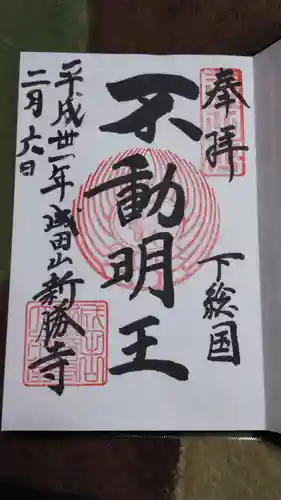 奉拝
下総国
不動明王
平成卅一年成田山新勝寺
二月六日